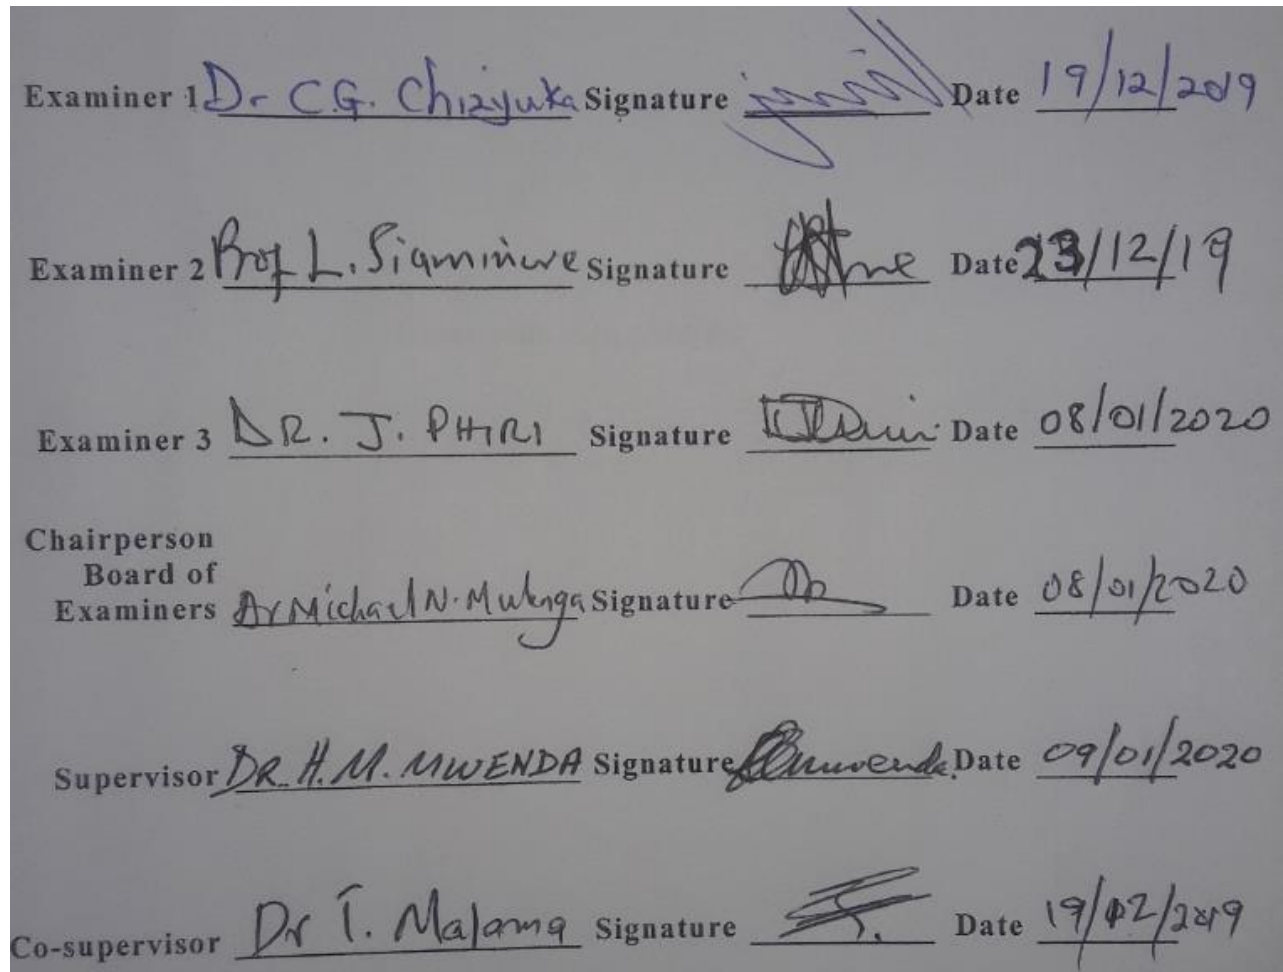 Examiner 1 Dr C.G. Chizyuka Signature Date 19/12/2019
Examiner 2 Prof L. Siaminwe Signature Date 23/12/19
Examiner 3 DR. J. PHIRI Signature Date 08/01/2020
Chairperson
Board of
Examiners Dr Michael N. Mulenga Signature Date 08/01/2020
Supervisor DR. H. M. MWENDA Signature Date 09/01/2020
Co-supervisor Dr T. Malama Signature Date 19/12/2019